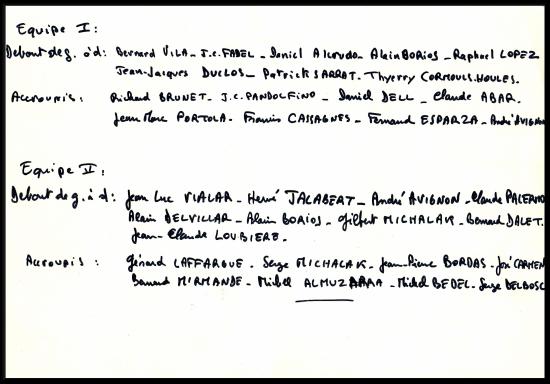 Equipe I :
Debout de g. à d : Bernard VILA - J.C. FABEL - Daniel Alcrudo - Alain BORIOS - Raphael LOPEZ
Jean-Jacques DUCLOS - Patrick SARRAT - Thyerry CORMOULS.HOULES.
Accroupis : Richard BRUNET - J.C. PANDOLFINO - Daniel DELL - Claude ABAR.
Jean Marc PORTOLA - Francis CASSAGNES - Fernand ESPARZA - André AVIGNON
Equipe II :
Debout de g. à d : Jean Luc VIALAR - Hervé JALABERT - André AVIGNON - Claude PALERMO
Alain DELVILLAR - Alain BORIOS - Gilbert MICHALAK - Bernard DALET.
Jean-Claude LOUBIERE.
Accroupis : Gérard LAFFARGUE - Serge MICHALAK - Jean-Pierre BORDAS - José CARMEN
MIRMANDE - Michel ALMUZARRA - Michel BEDEL - Serge DELBOSC